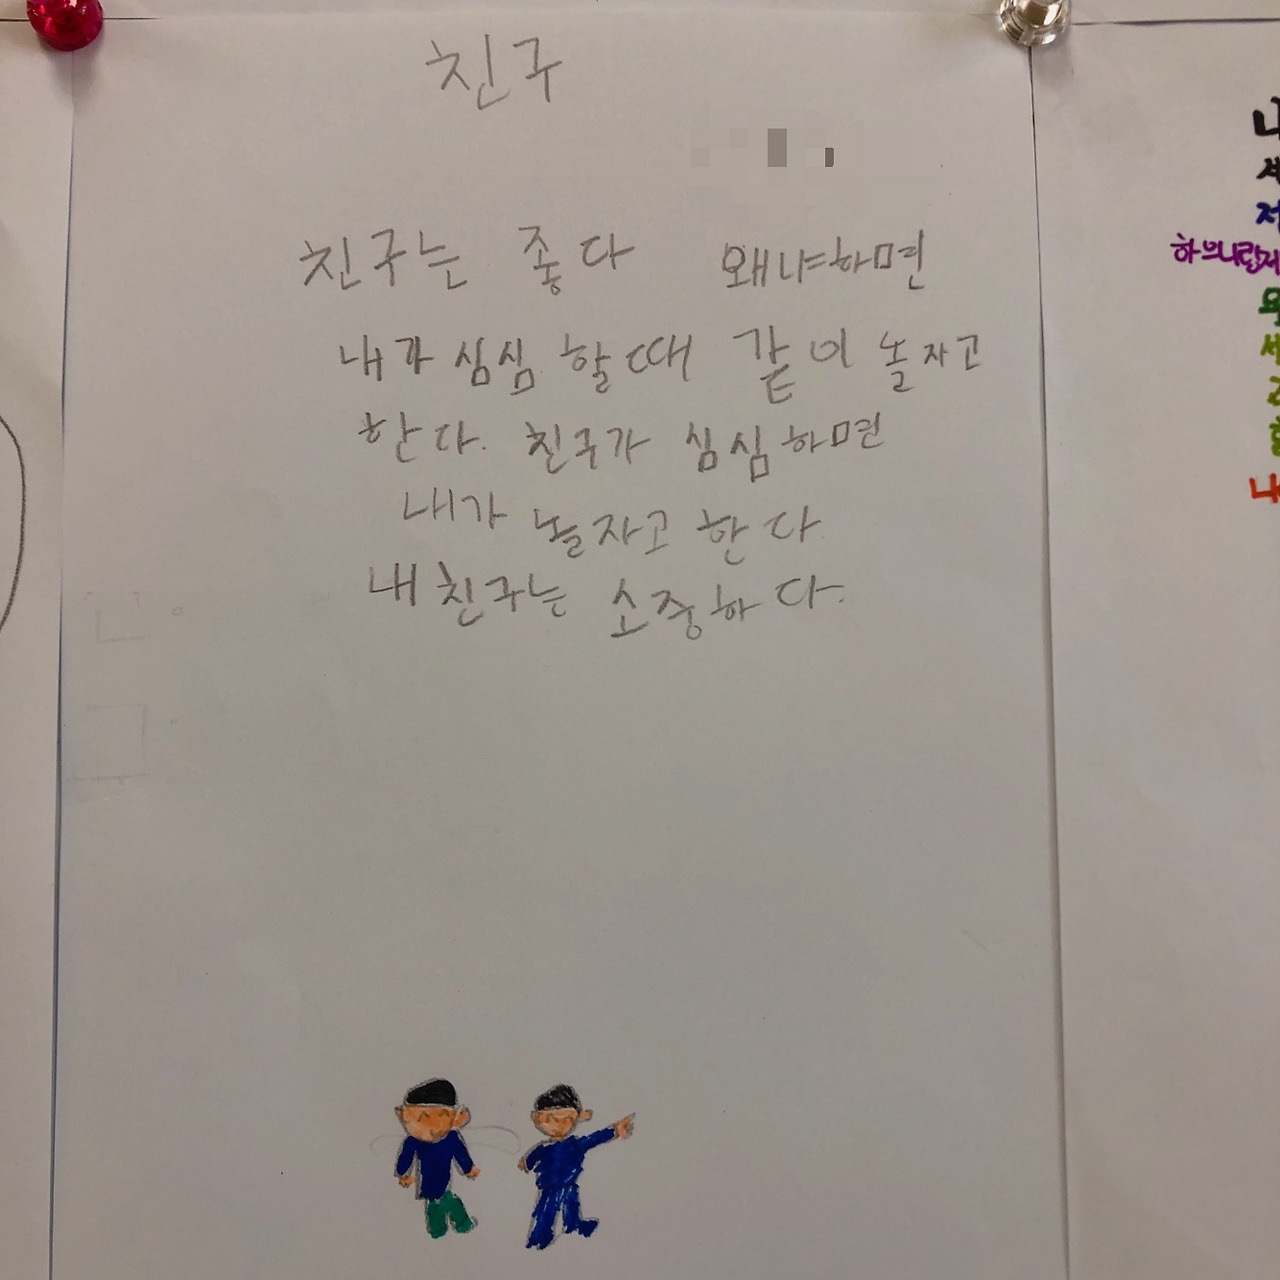 친구
친구는 좋다 왜냐하면
내가 심심 할때 같이 놀자고
한다. 친구가 심심하면
내가 놀자고 한다
내 친구는 소중하다.